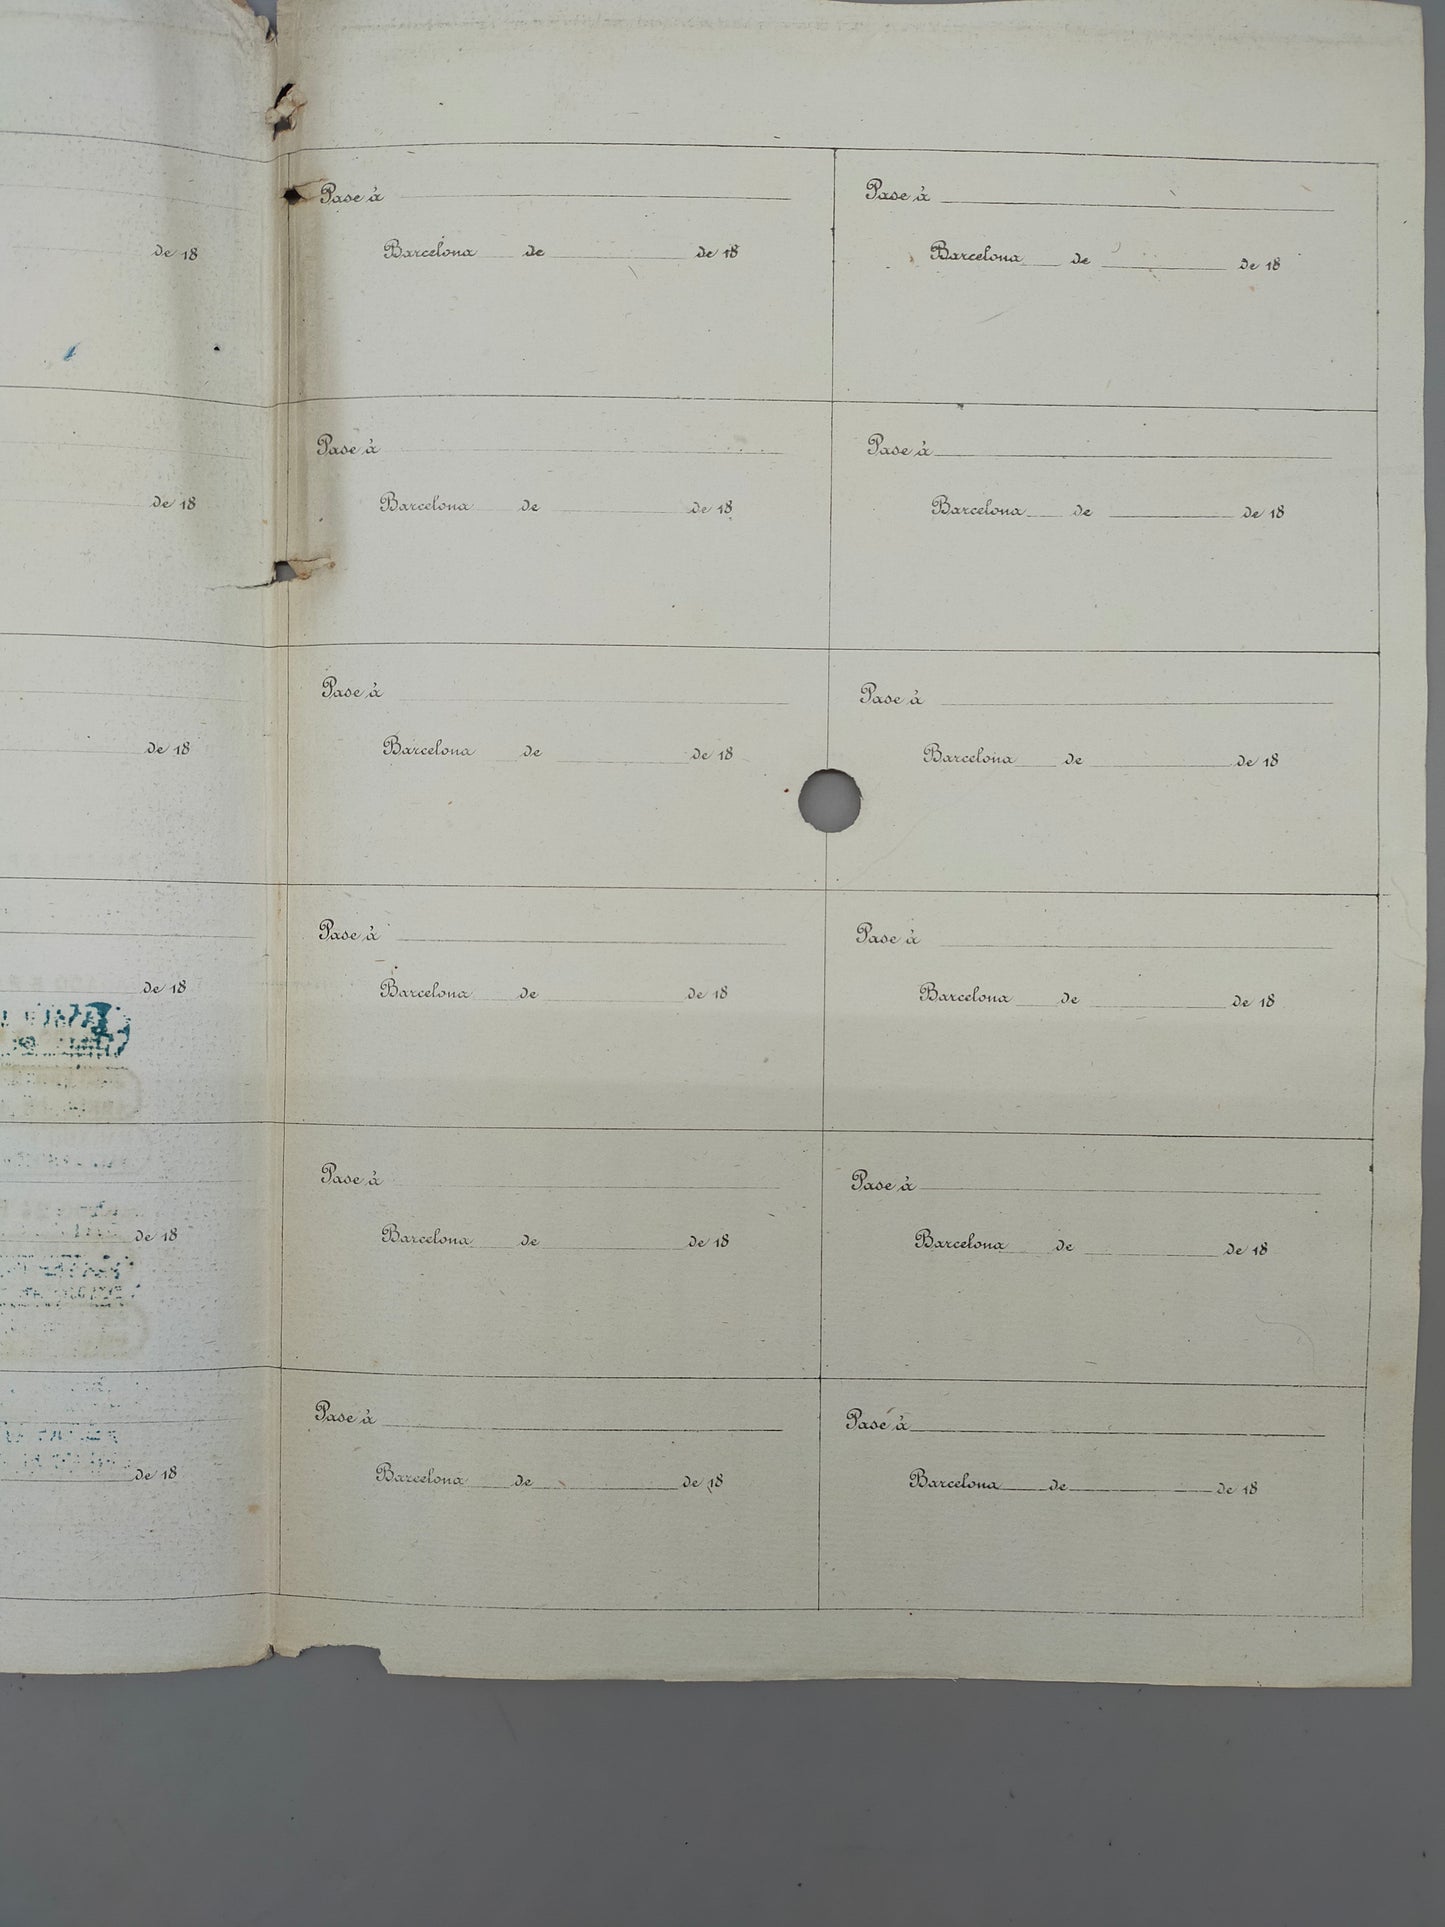 de 18
Pase á
Barcelona de de 18
Pase á
Barcelona de de 18
de 18
Pase á
Barcelona de de 18
Pase á
Barcelona de de 18
de 18
Pase á
Barcelona de de 18
Pase á
Barcelona de de 18
de 18
Pase á
Barcelona de de 18
Pase á
Barcelona de de 18
de 18
Pase á
Barcelona de de 18
Pase á
Barcelona de de 18
de 18
Pase á
Barcelona de de 18
Pase á
Barcelona de de 18